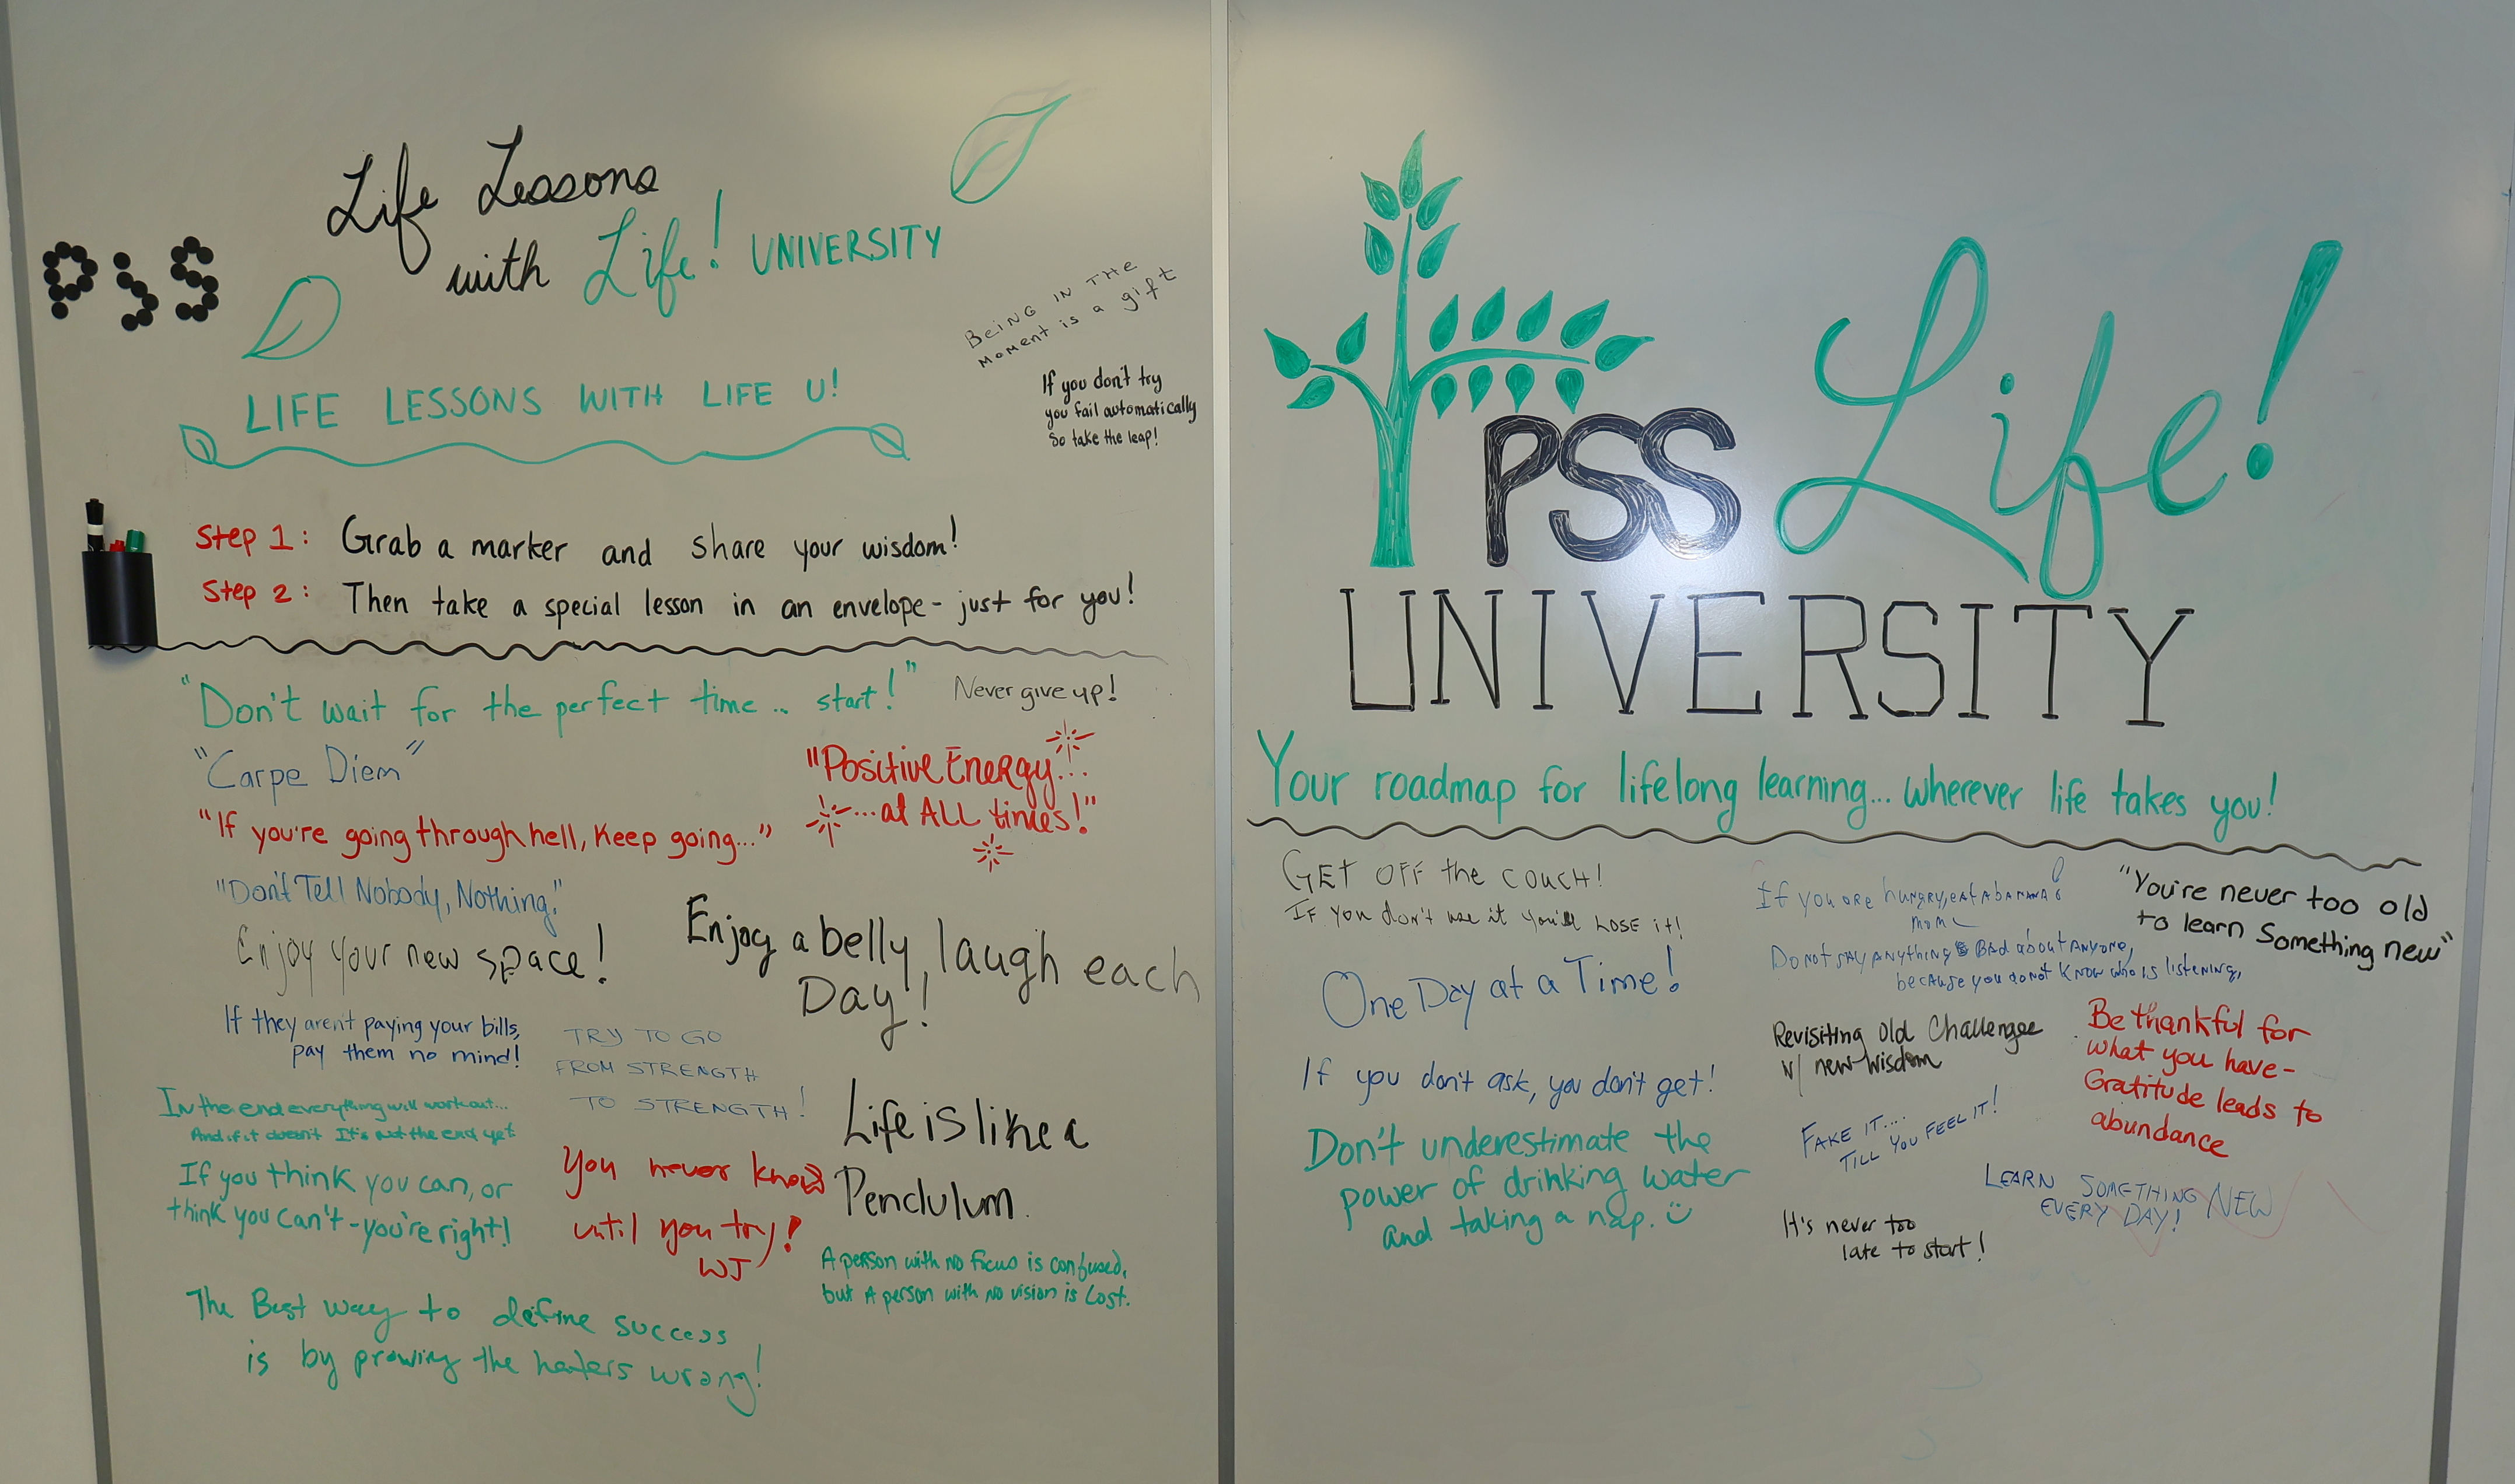 PSS
Life Lessons
with Life! UNIVERSITY
BEING IN THE
MOMENT is a gift
LIFE LESSONS WITH LIFE U!
If you don't try
you fail automatically
So take the leap!
Step 1: Grab a marker and share your wisdom!
Step 2: Then take a special lesson in an envelope - just for you!
"Don't wait for the perfect time... start!"
Never give up!
"Carpe Diem"
"Positive Energy...
...at ALL times!"
"If you're going through hell, keep going..."
"Don't Tell Nobody, Nothing."
Enjoy your new space!
Enjoy a belly laugh each
Day!
If they aren't paying your bills,
pay them no mind!
TRY TO GO
FROM STRENGTH
TO STRENGTH!
In the end everything will workout...
And if it doesn't It's not the end yet
Life is like a
Pendulum.
If you think you can, or
think you can't - you're right!
You never know
until you try!
WJ
A person with no focus is confused,
but A person with no vision is Lost.
The Best way to define success
is by prowing the haters wrong!
PSS Life!
UNIVERSITY
Your roadmap for lifelong learning... wherever life takes you!
GET OFF the couch!
IF You don't use it you'll LOSE it!
One Day at a Time!
If you don't ask, you don't get!
Don't underestimate the
power of drinking water
and taking a nap.
If you are hungry, eat a banana!
mom
Do not say anything Bad about Anyone,
because you do not know who is listening,
"You're never too old
to learn Something new"
Revisiting Old Challenges
w/ new wisdom
Be thankful for
what you have-
Gratitude leads to
abundance
FAKE IT...
TILL YOU FEEL IT!
LEARN SOMETHING NEW
EVERY DAY!
It's never too
late to start!